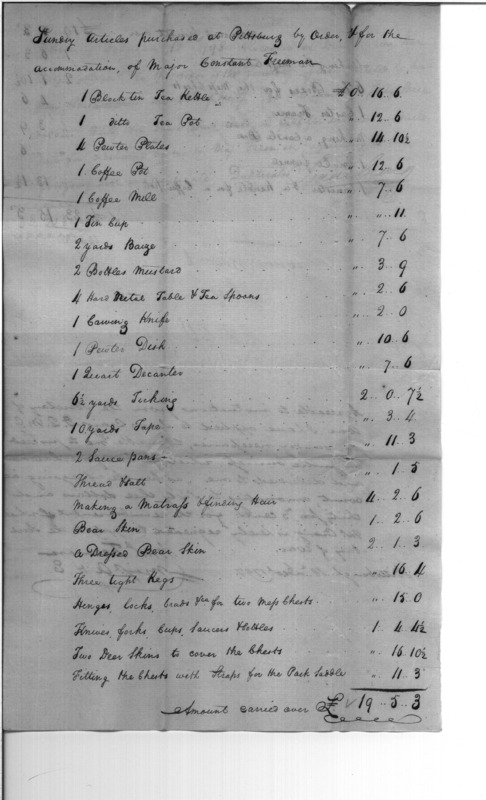 Sundry Articles purchased at Pittsburg by Order, & for the
accommodation, of Major Constant Freeman
1 Block tin Tea Kettle £ 0 .. 16 .. 6
1 ditto Tea Pot " .. 12 .. 6
4 Pewter Plates " .. 14 .. 10½
1 Coffee Pot " .. 12 .. 6
1 Coffee Mill " .. 7 .. 6
1 Tin Cup " .. " .. 11
2 yards Baize " .. 7 .. 6
2 Bottles Mustard " .. 3 .. 9
4 Hard Metal Table & Tea Spoons " .. 2 .. 6
1 Carving Knife " .. 2 .. 0
1 Pewter Dish " .. 10 .. 6
1 Quart Decanter " .. 7 .. 6
6½ yards Ticking 2 .. 0 .. 7½
10 yards Tape " .. 3 .. 4
2 Sauce pans " .. 11 .. 3
Thread " .. 1 .. 5
Making a Matrass & finding Hair 4 .. 2 .. 6
Bear Skin 1 .. 2 .. 6
a Dressed Bear Skin 2 .. 1 .. 3
Three tight Kegs " .. 16 .. 4
Hinges, locks, brads &ca for two Mess Chests " .. 15 .. 0
Knives, forks, Cups, Saucers & bottles 1 .. 4 .. 4½
Two Dear Skins to cover the Chests " .. 16 .. 10½
Fitting the Chests with Straps for the Pack Saddle " .. 11 .. 3
Amount carried over £ 19 .. 5 .. 3